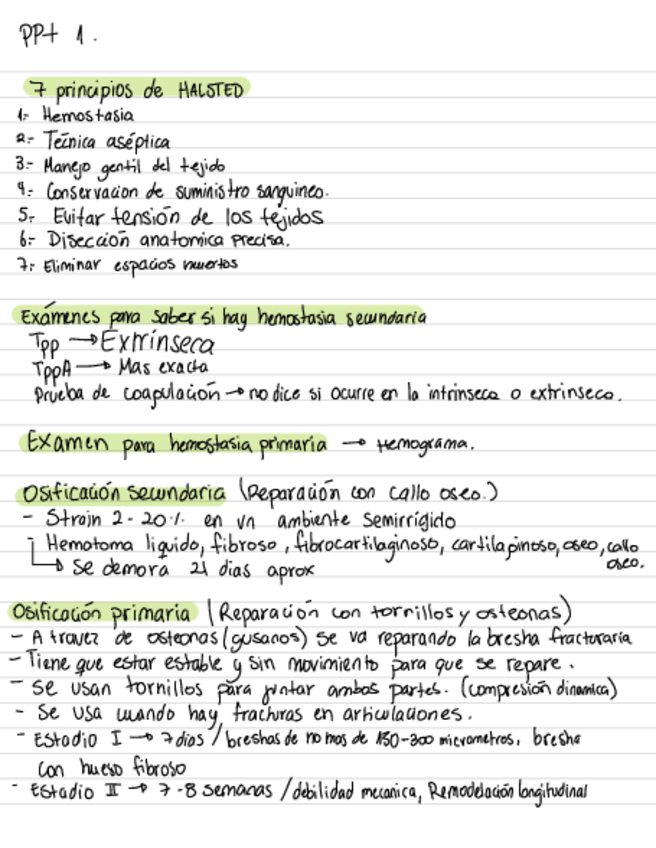 PPt 1.
7 principios de HALSTED
1- Hemostasia
2- Tecnica aséptica
3- Manejo gentil del tejido
4- Conservacion de suministro sanguineo.
5- Evitar tensión de los tejidos
6- Disección anatomica precisa.
7- Eliminar espacios muertos
Exámenes para saber si hay hemostasia secundaria
Tpp → Extrínseca
TppA → Mas exacta
Prueba de coagulación → no dice si ocurre en la intrinseca o extrinseca.
Examen para hemostasia primaria → Hemograma.
Osificación secundaria (Reparación con callo oseo.)
- Strain 2-20% en un ambiente semirrígido
Hematoma liquido, fibroso, fibrocartilaginoso, cartilaginoso, oseo, callo oseo.
↳ Se demora 21 dias aprox
Osificación primaria (Reparación con tornillos y osteonas)
- A travez de osteonas (gusanos) se va reparando la bresha fracturaria
- Tiene que estar estable y sin movimiento para que se repare.
- Se usan tornillos para juntar ambas partes. (compresión dinamica)
- Se usa cuando hay fracturas en articulaciones.
- Estadio I → 7 dias / breshas de no mas de 150-300 micrometros, bresha
con hueso fibroso
- Estadio II → 7-8 semanas / debilidad mecanica, Remodelación longitudinal